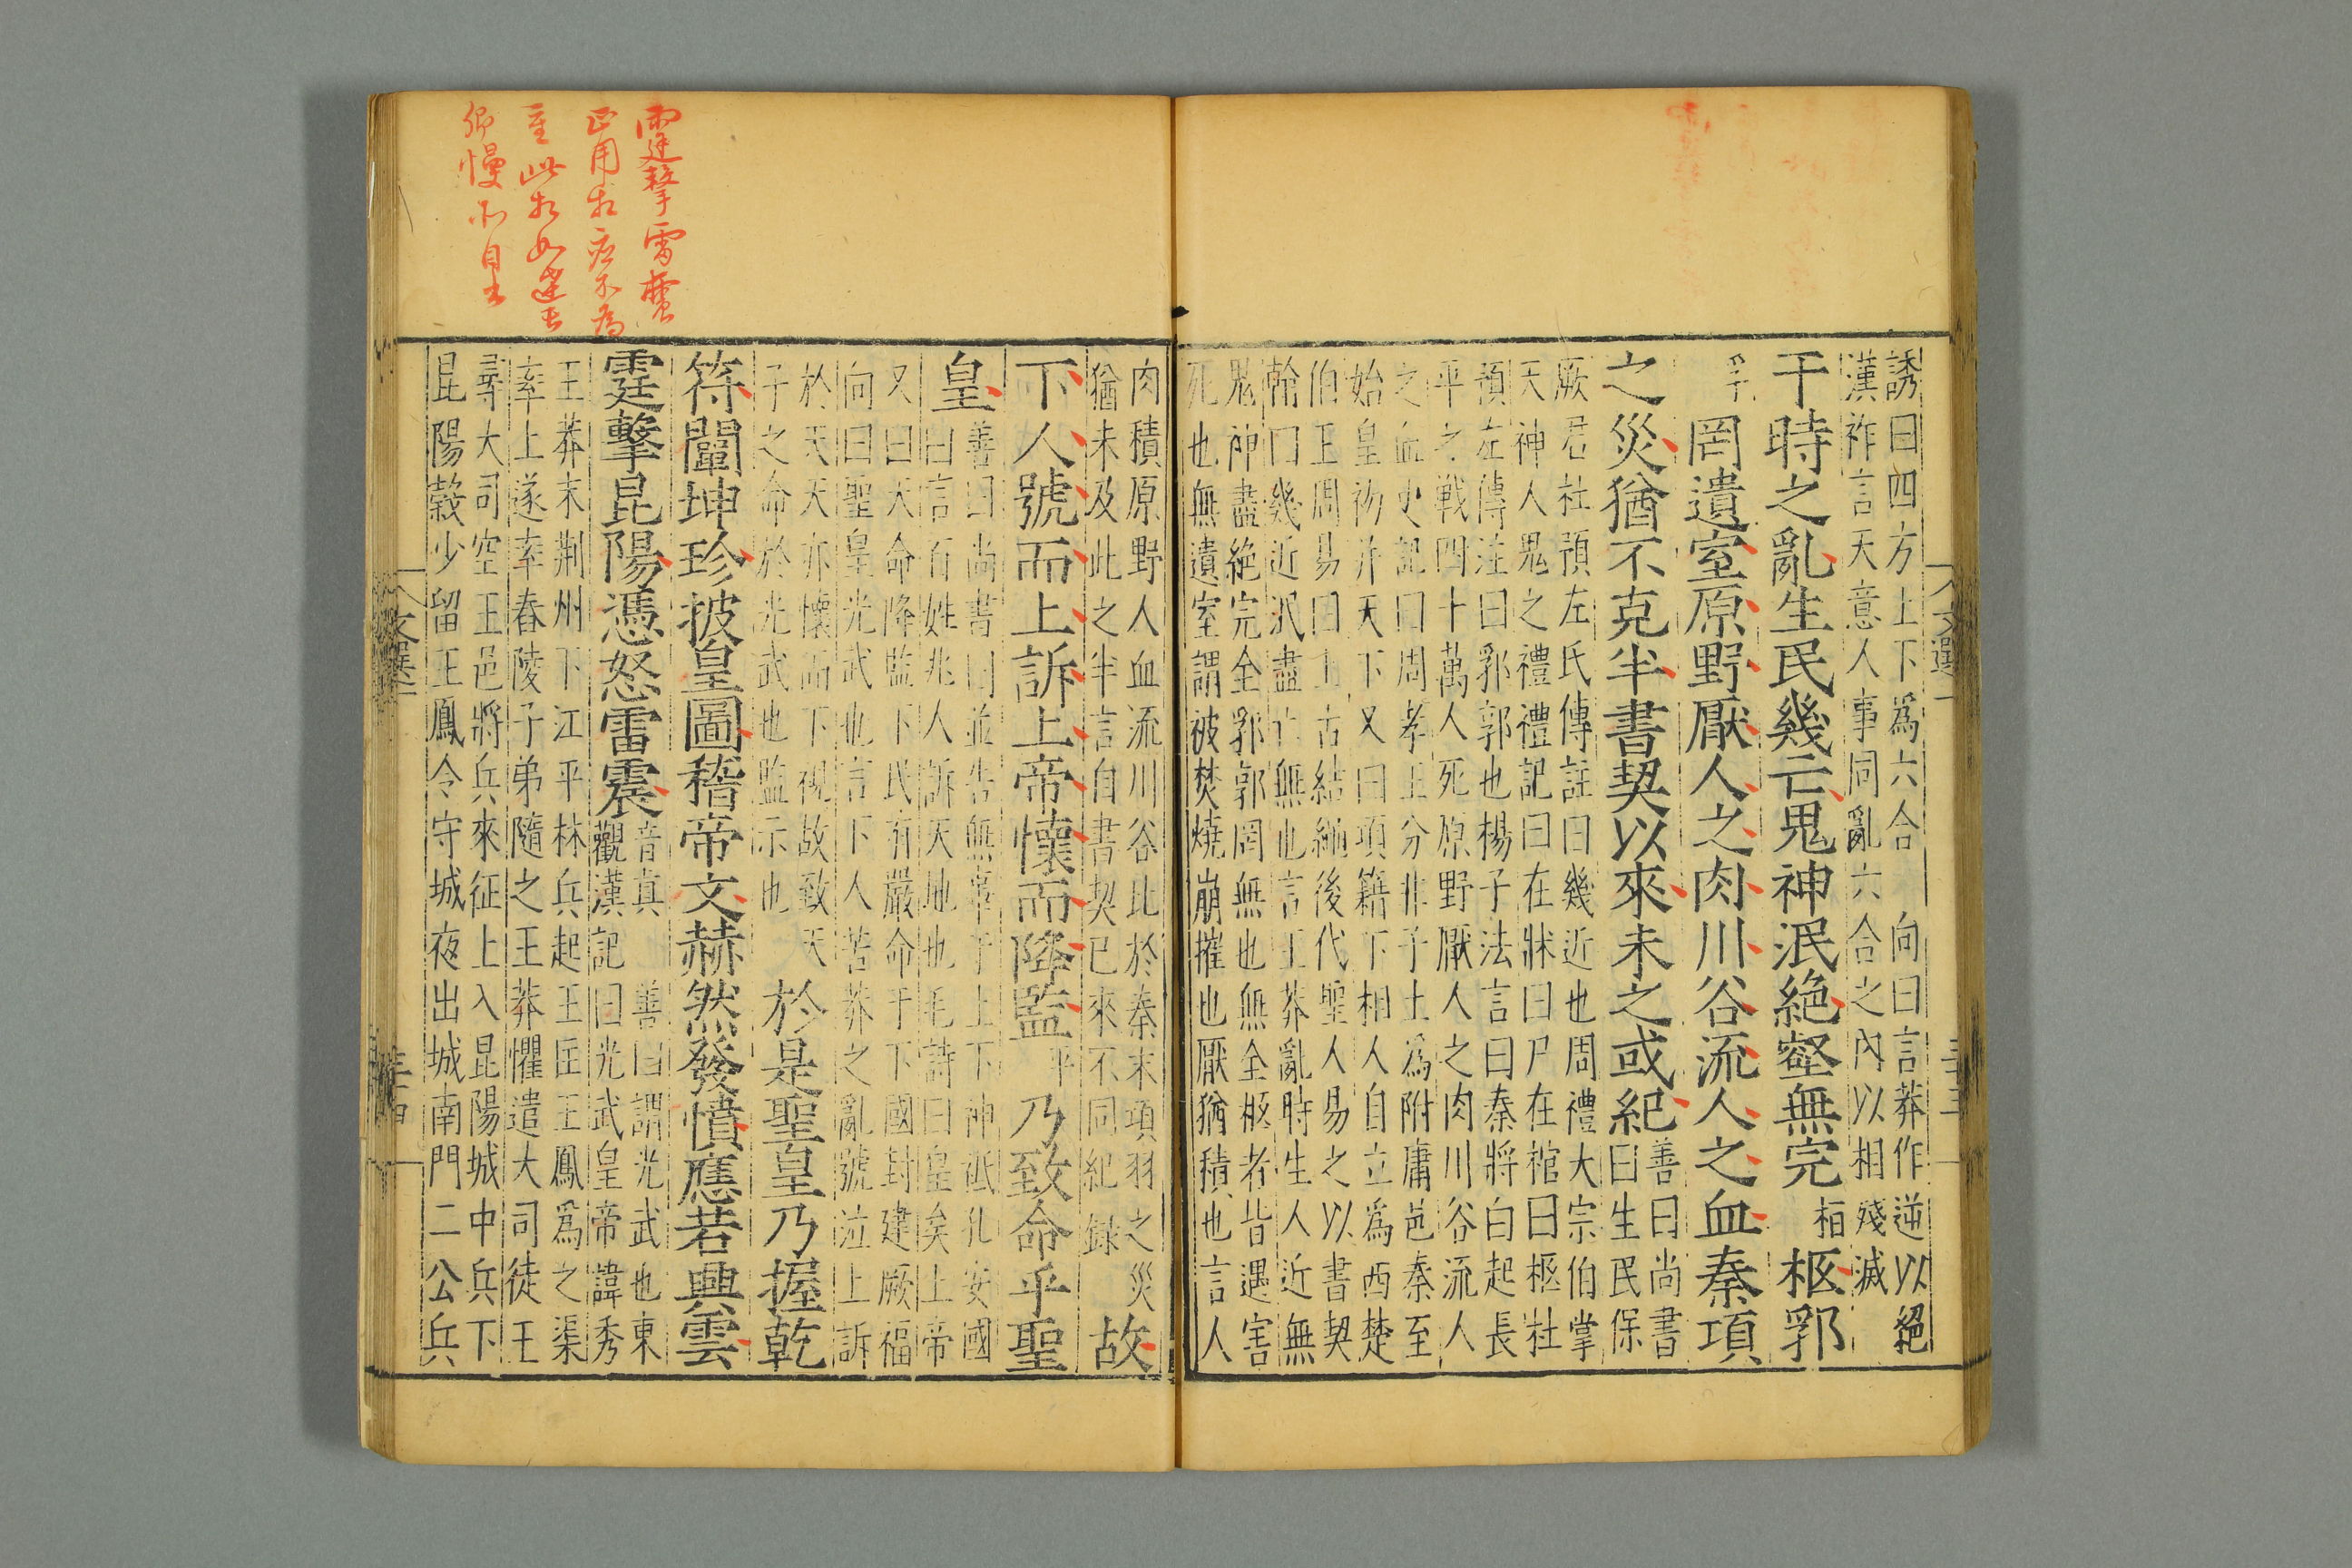 誘曰四方上下爲六合　向曰言莽作逆以絕
漢祚言天意人事同亂六合之内以相殘滅
于時之亂生民幾亡鬼神泯絕壑無完栢柩郛
孚罔遺室原野厭人之肉川谷流人之血秦項
之災猶不克半書契以來未之或紀
善曰尚書
曰生民保
厥君杜預左氏傳註曰幾近也周禮大宗伯掌
天神人鬼之禮禮記曰在牀曰尸在棺曰柩杜
預左傳注曰郛郭也楊子法言曰秦將白起長
平之戰四十萬人死原野厭人之肉川谷流人
之血史記曰周孝王分非子土爲附庸邑秦至
始皇初并天下又曰項籍下相人自立爲西楚
伯王周易曰上古結繩後代聖人易之以書契
翰曰幾近泯盡亡無也言王莽亂時生人近無
鬼神盡絕完全郛郭罔無也無全柩者皆遇害
死也無遺室謂被焚燒崩摧也厭猶積也言人
文選一
三十三
肉積原野人血流川谷比於秦末項羽之災
猶未及此之半言自書契已來不同紀録
故
下人號而上訴上帝懷而降監平乃致命乎聖
皇
善曰尚書曰並告無辜于上下神祗孔安國
曰言百姓兆人訴天地也毛詩曰皇矣上帝
又曰天命降監下民有嚴命于下國封建厥福
向曰聖皇光武也言下人苦莽之亂號泣上訴
於天天亦懷而下視故致天
子之命於光武也監示也
於是聖皇乃握乾
符闡坤珍披皇圖稽帝文赫然發憤應若興雲
霆擊昆陽憑怒雷震
音真　善曰謂光武也東
觀漢記曰光武皇帝諱秀
王莽末荆州下江平林兵起王匡王鳳爲之渠
率上遂率舂陵子弟隨之王莽懼遣大司徒王
尋大司空王邑將兵來征上入昆陽城中兵下
昆陽穀少留王鳳令守城夜出城南門二公兵
文選一
三十四
霆擊雷震
正用
不爲
此
卿慢
自